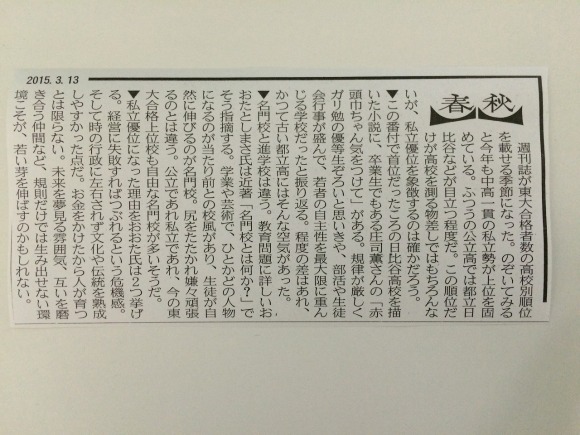 2015.3.13
春秋
週刊誌が東大合格者数の高校別順位
を載せる季節になった。のぞいてみる
と今年も中高一貫の私立勢が上位を固
めている。ふつうの公立高では都立日
比谷などが目立つ程度だ。この順位だ
けが高校を測る物差しではもちろんな
いが、私立優位を象徴するのは確かだろう。
▼この番付で首位だったころの日比谷高校を描
いた小説に、卒業生でもある庄司薫さんの「赤
頭巾ちゃん気をつけて」がある。規律が厳しく
ガリ勉の優等生ぞろいと思いきや、部活や生徒
会行事が盛んで、若者の自主性を最大限に重ん
じる学校だったと振り返る。程度の差はあれ、
かつて古い都立高にはそんな空気があった。
▼名門校と進学校は違う。教育問題に詳しいお
おたとしまさ氏は近著「名門校とは何か?」で
そう指摘する。学業や芸術で、ひとかどの人物
になるのが当たり前との校風があり、生徒が自
然に伸びるのが名門校。尻をたたかれ嫌々頑張
るのとは違う。公立であれ私立であれ、今の東
大合格上位校も自由な名門校が多いそうだ。
▼私立優位になった理由をおおた氏は2つ挙げ
る。経営に失敗すればつぶれるという危機感。
そして時の行政に左右されず文化や伝統を熟成
しやすかった点だ。お金をかけたから人が育つ
とは限らない。未来を夢見る雰囲気、互いを磨
き合う仲間など、規則だけでは生み出せない環
境こそが、若い芽を伸ばすのかもしれない。